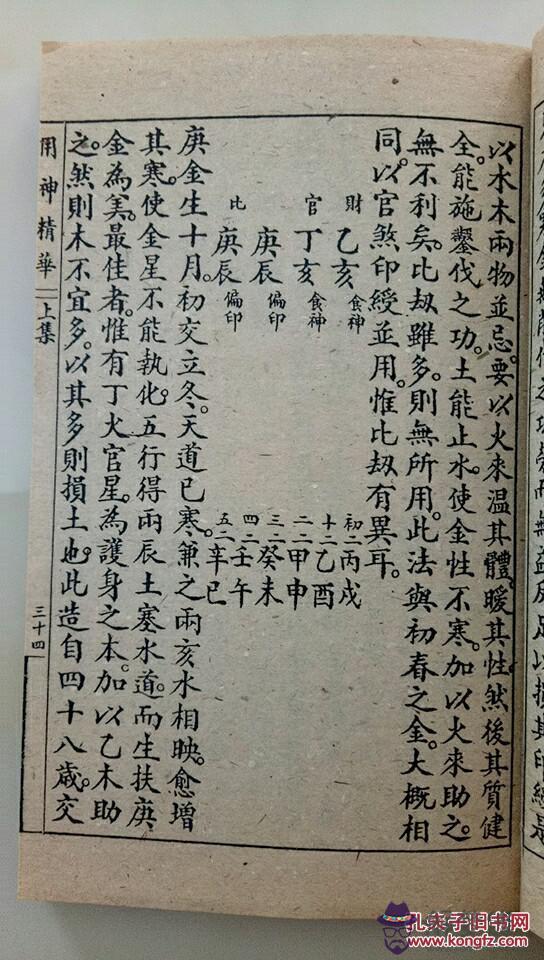 以水木兩物並忌。要以火來温其體。暖其性。然後其質健
全。能施鑿伐之功。土能止水。使金性不寒。加以火來助之。
無不利矣。比刼雖多。則無所用。此法與初春之金。大概相
同。以官煞印綬並用。惟比刼有異耳。
財 乙亥 食神 初二丙戌
官 丁亥 食神 十二乙酉
庚辰 偏印 二二甲申
比 庚辰 偏印 三二癸未
四二壬午
五二辛巳
庚金生十月。初交立冬。天道已寒。兼之兩亥水相映。愈增
其寒。使金星不能執化。五行得兩辰土塞水道。而生扶庚
金為美。最佳者。惟有丁火官星。為護身之本。加以乙木助
之。然則木不宜多。以其多則損土也。此造自四十八歲。交
用神精華 上集 三十四
孔夫子旧书网
www.kongfz.com